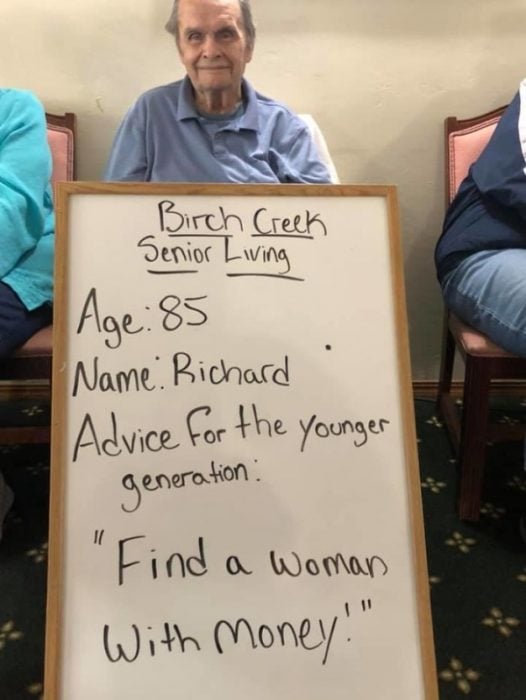 Birch Creek
Senior Living
Age: 85
Name: Richard
Advice for the younger
generation:
"Find a woman
With Money!"